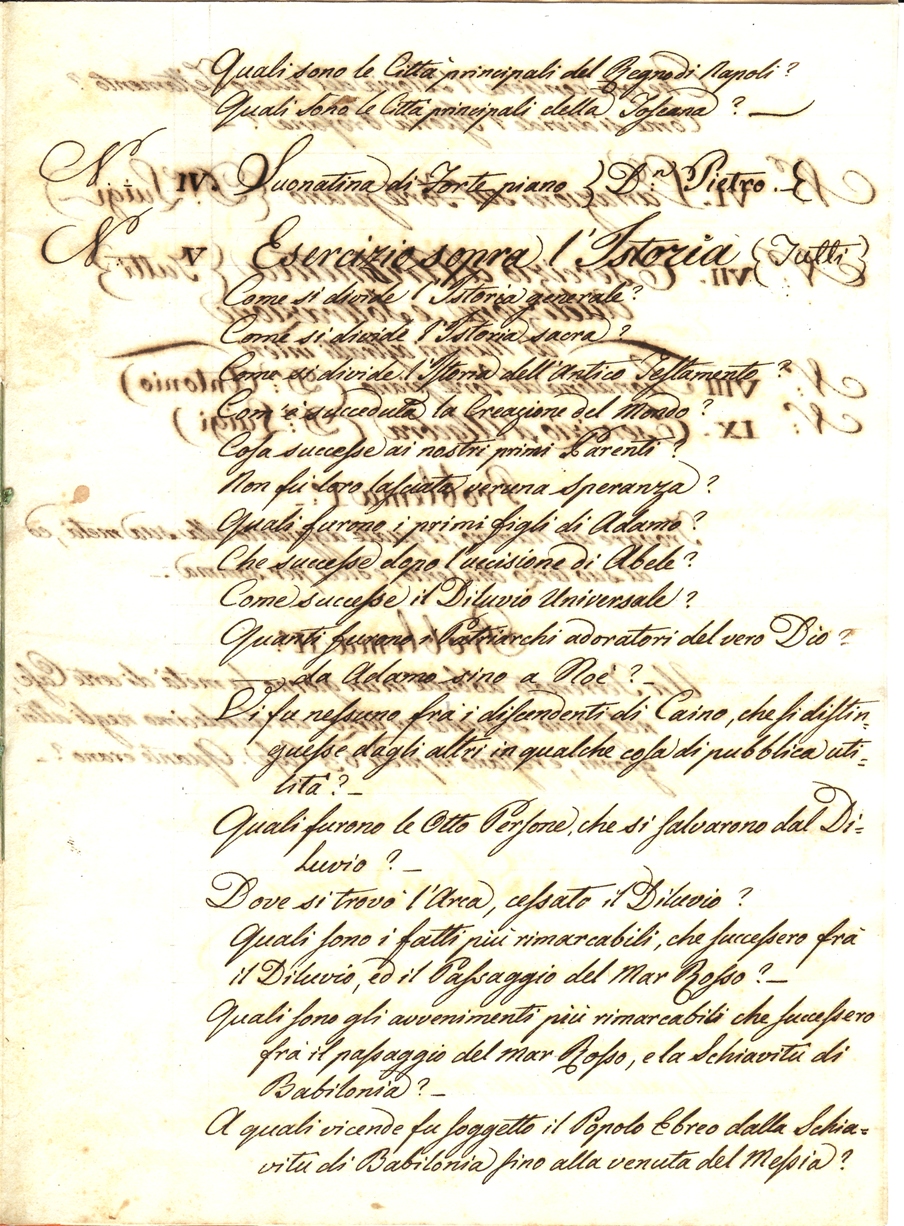 Quali sono le Città principali del Regno di Napoli?
Quali sono le Città principali della Toscana?—
N.º IV. Suonatina di Forte piano { D.n Pietro.—}
N.º V Esercizio sopra l'Istoria { Tutti }
Come si divide l'Istoria generale?
Come si divide l'Istoria sacra?
Come si divide l'Istoria dell'Antico Testamento?
Com'è succeduta la Creazione del Mondo?
Cosa successe ai nostri primi Parenti?
Non fu loro lasciata veruna speranza?
Quali furono i primi figli di Adamo?
Che successe dopo l'uccisione di Abele?
Come successe il Diluvio Universale?
Quanti furono i Patriarchi adoratori del vero Dio
da Adamo sino a Noè?—
Vi fu nessuno frà i discendenti di Caino, che si distin=
guesse dagli altri in qualche cosa di pubblica uti=
lità?—
Quali furono le Otto Persone, che si salvarono dal Di=
luvio?—
Dove si trovò l'Arca, cessato il Diluvio?
Quali sono i fatti più rimarcabili, che successero frà
il Diluvio, ed il Passaggio del Mar Rosso?—
Quali sono gli avvenimenti più rimarcabili che successero
frà il passaggio del mar Rosso, e la Schiavitù di
Babilonia?—
A quali vicende fu soggetto il Popolo Ebreo dalla Schia=
vitù di Babilonia sino alla venuta del Messia?